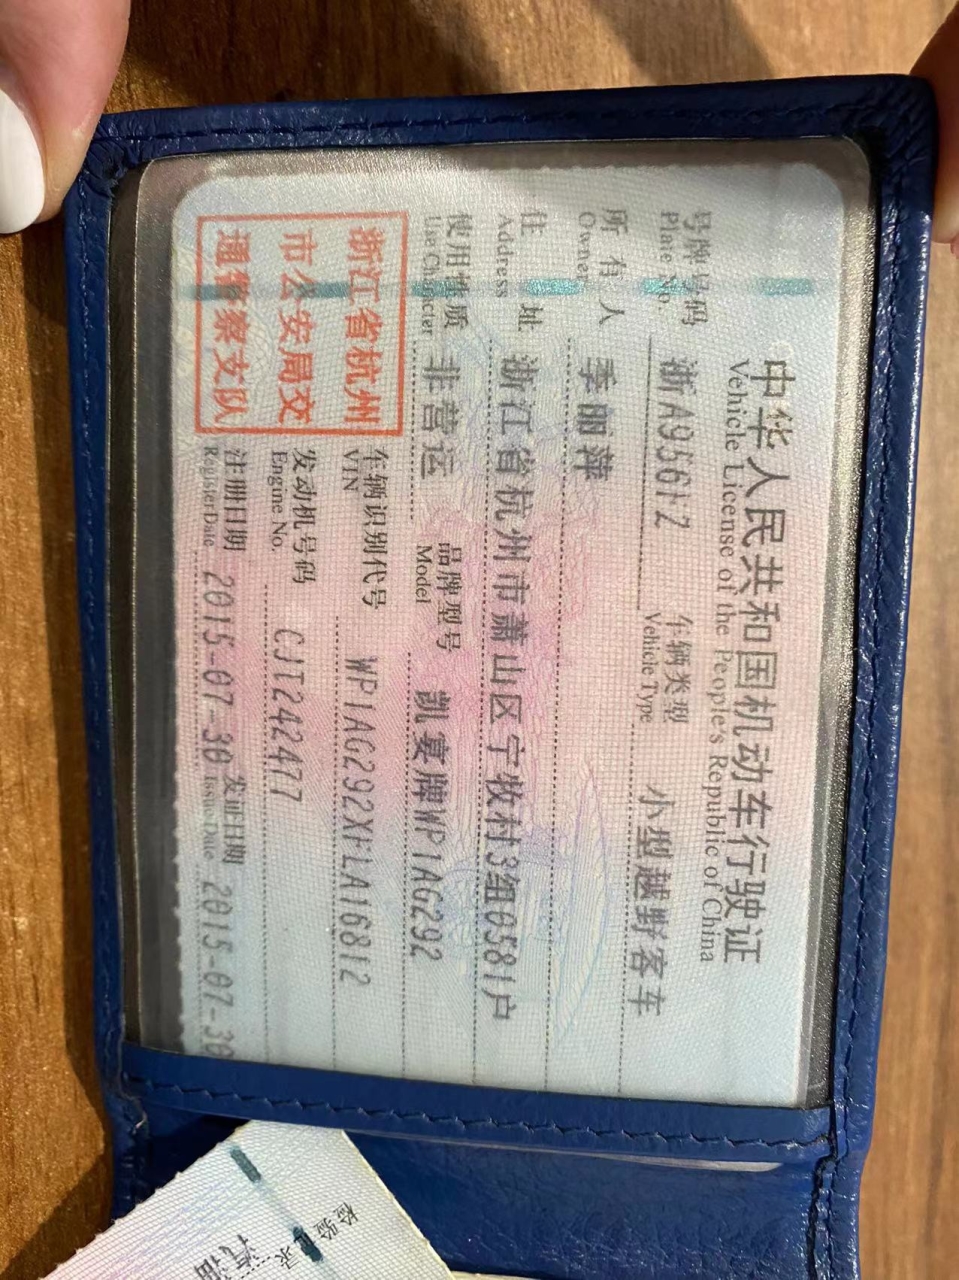 中华人民共和国机动车行驶证
Vehicle License of the People's Republic of China
号牌号码 浙A956F2 车辆类型 小型越野客车
Plate No. Vehicle Type
所有人 季丽萍
Owner
住址 浙江省杭州市萧山区宁牧村3组0581户
Address
使用性质 非营运 品牌型号 凯宴牌WP1AG292
Use Character Model
浙江省杭州
市公安局交
通警察支队
车辆识别代号 WP1AG292XFLA16812
VIN
发动机号码 CJT242477
Engine No.
注册日期 2015-07-30 发证日期 2015-07-30
Register Date Issue Date
检验记录